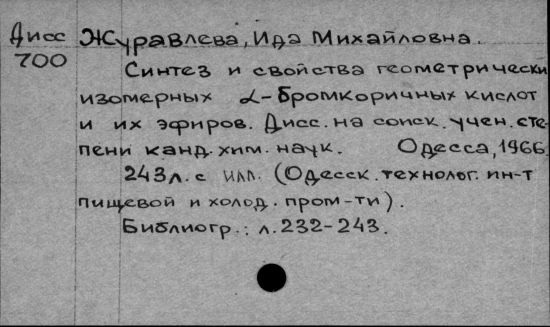 Дисс Журавлева, Ида Михайловна.
700
Синтез и свойства геометрически
изомерных α-бромкоричных кислот
и их эфиров. Дисс. на соиск. учен. сте-
пени канд. хим. наук. Одесса, 1966.
243л. с илл. (Одесск. технолог. ин-т
пищевой и холод. пром-ти).
Библиогр.: л. 232-243.